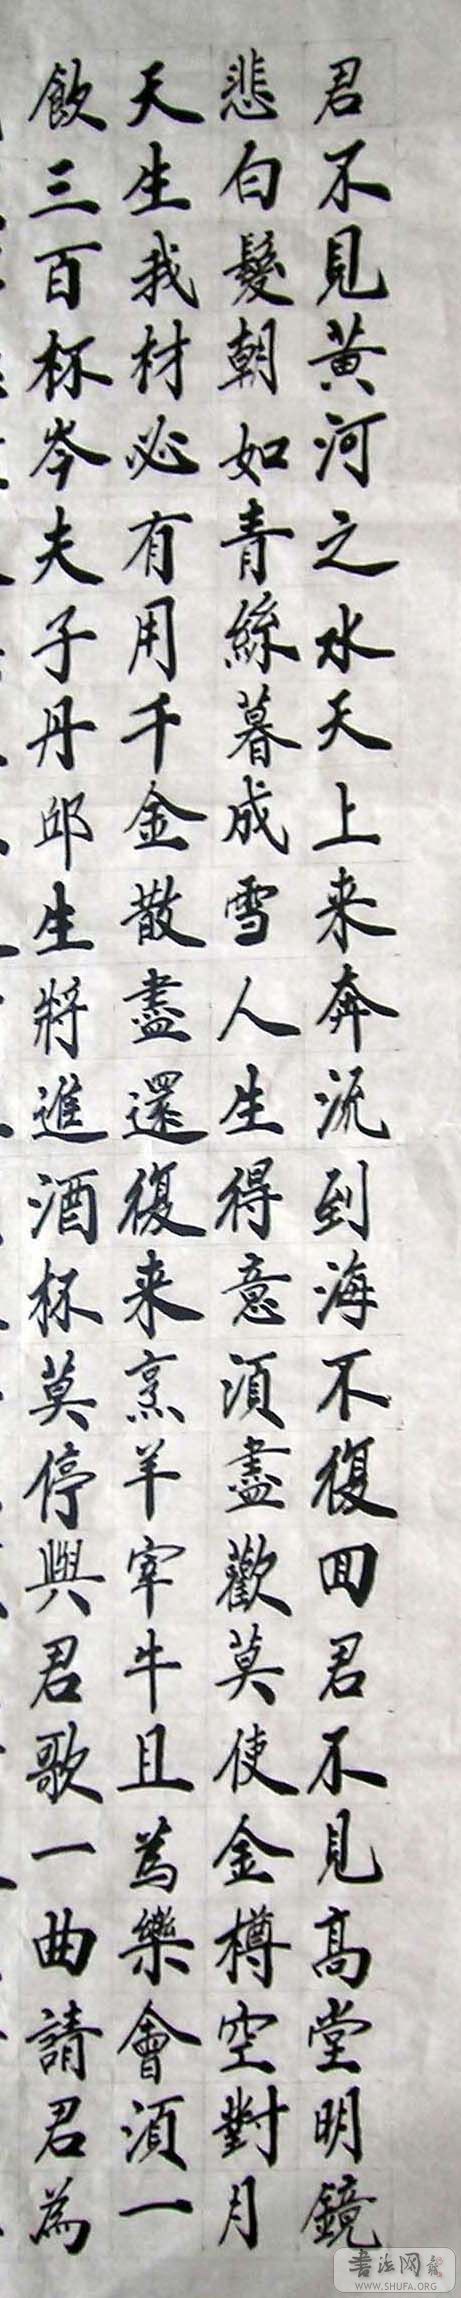 君不見黃河之水天上来奔流到海不復回君不見高堂明鏡
悲白髮朝如青絲暮成雪人生得意須盡歡莫使金樽空對月
天生我材必有用千金散盡還復来烹羊宰牛且為樂會須一
飲三百杯岑夫子丹邱生將進酒杯莫停與君歌一曲請君為
書法网
WWW.SHUFA.ORG